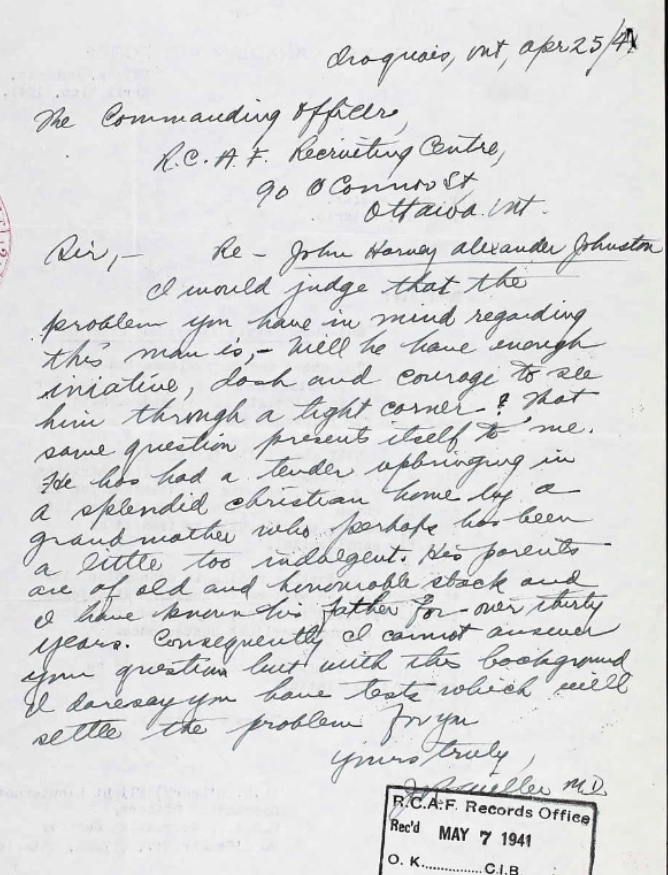 Iroquois, Ont, Apr 25/41
The Commanding Officer,
R.C.A.F. Recruiting Centre,
90 O'Connor St,
Ottawa. Ont.
Sir,- Re- John Harvey Alexander Johnston
I would judge that the
problem you have in mind regarding
this man is,- Will he have enough
iniative, dash and courage to see
him through a tight corner? That
same question presents itself to me.
He has had a tender upbringing in
a splendid christian home by a
grandmother who perhaps has been
a little too indulgent. His parents
are of old and honourable stock and
I have known his father for over thirty
years. Consequently I cannot answer
your question but with this background
I daresay you have tests which will
settle the problem for you
Yours truly,
M.D.
R.C.A.F. Records Office
Rec'd MAY 7 1941
O. K. ............... C.I.B.